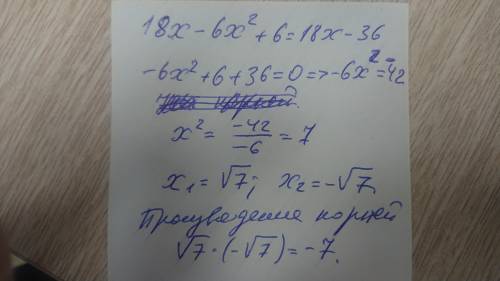 18x - 6x² + 6 = 18x - 36
-6x² + 6 + 36 = 0 => -6x² = -42
x² = -42/-6 = 7
x₁ = √7; x₂ = -√7
Произведение корней
√7 · (-√7) = -7.